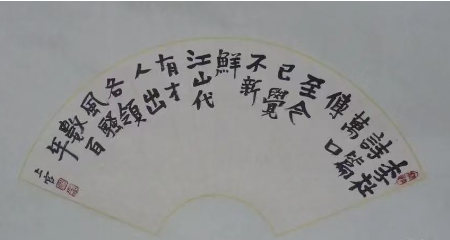 李杜
詩篇
萬口
傳
至今
已覺
不新
鮮
江山代
有才
人出
各領
風騷
數百
年